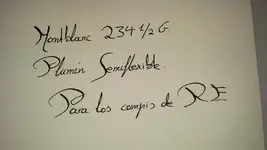 Montblanc 234 ½ G
Plumín Semiflexible.
Para los compis de RE